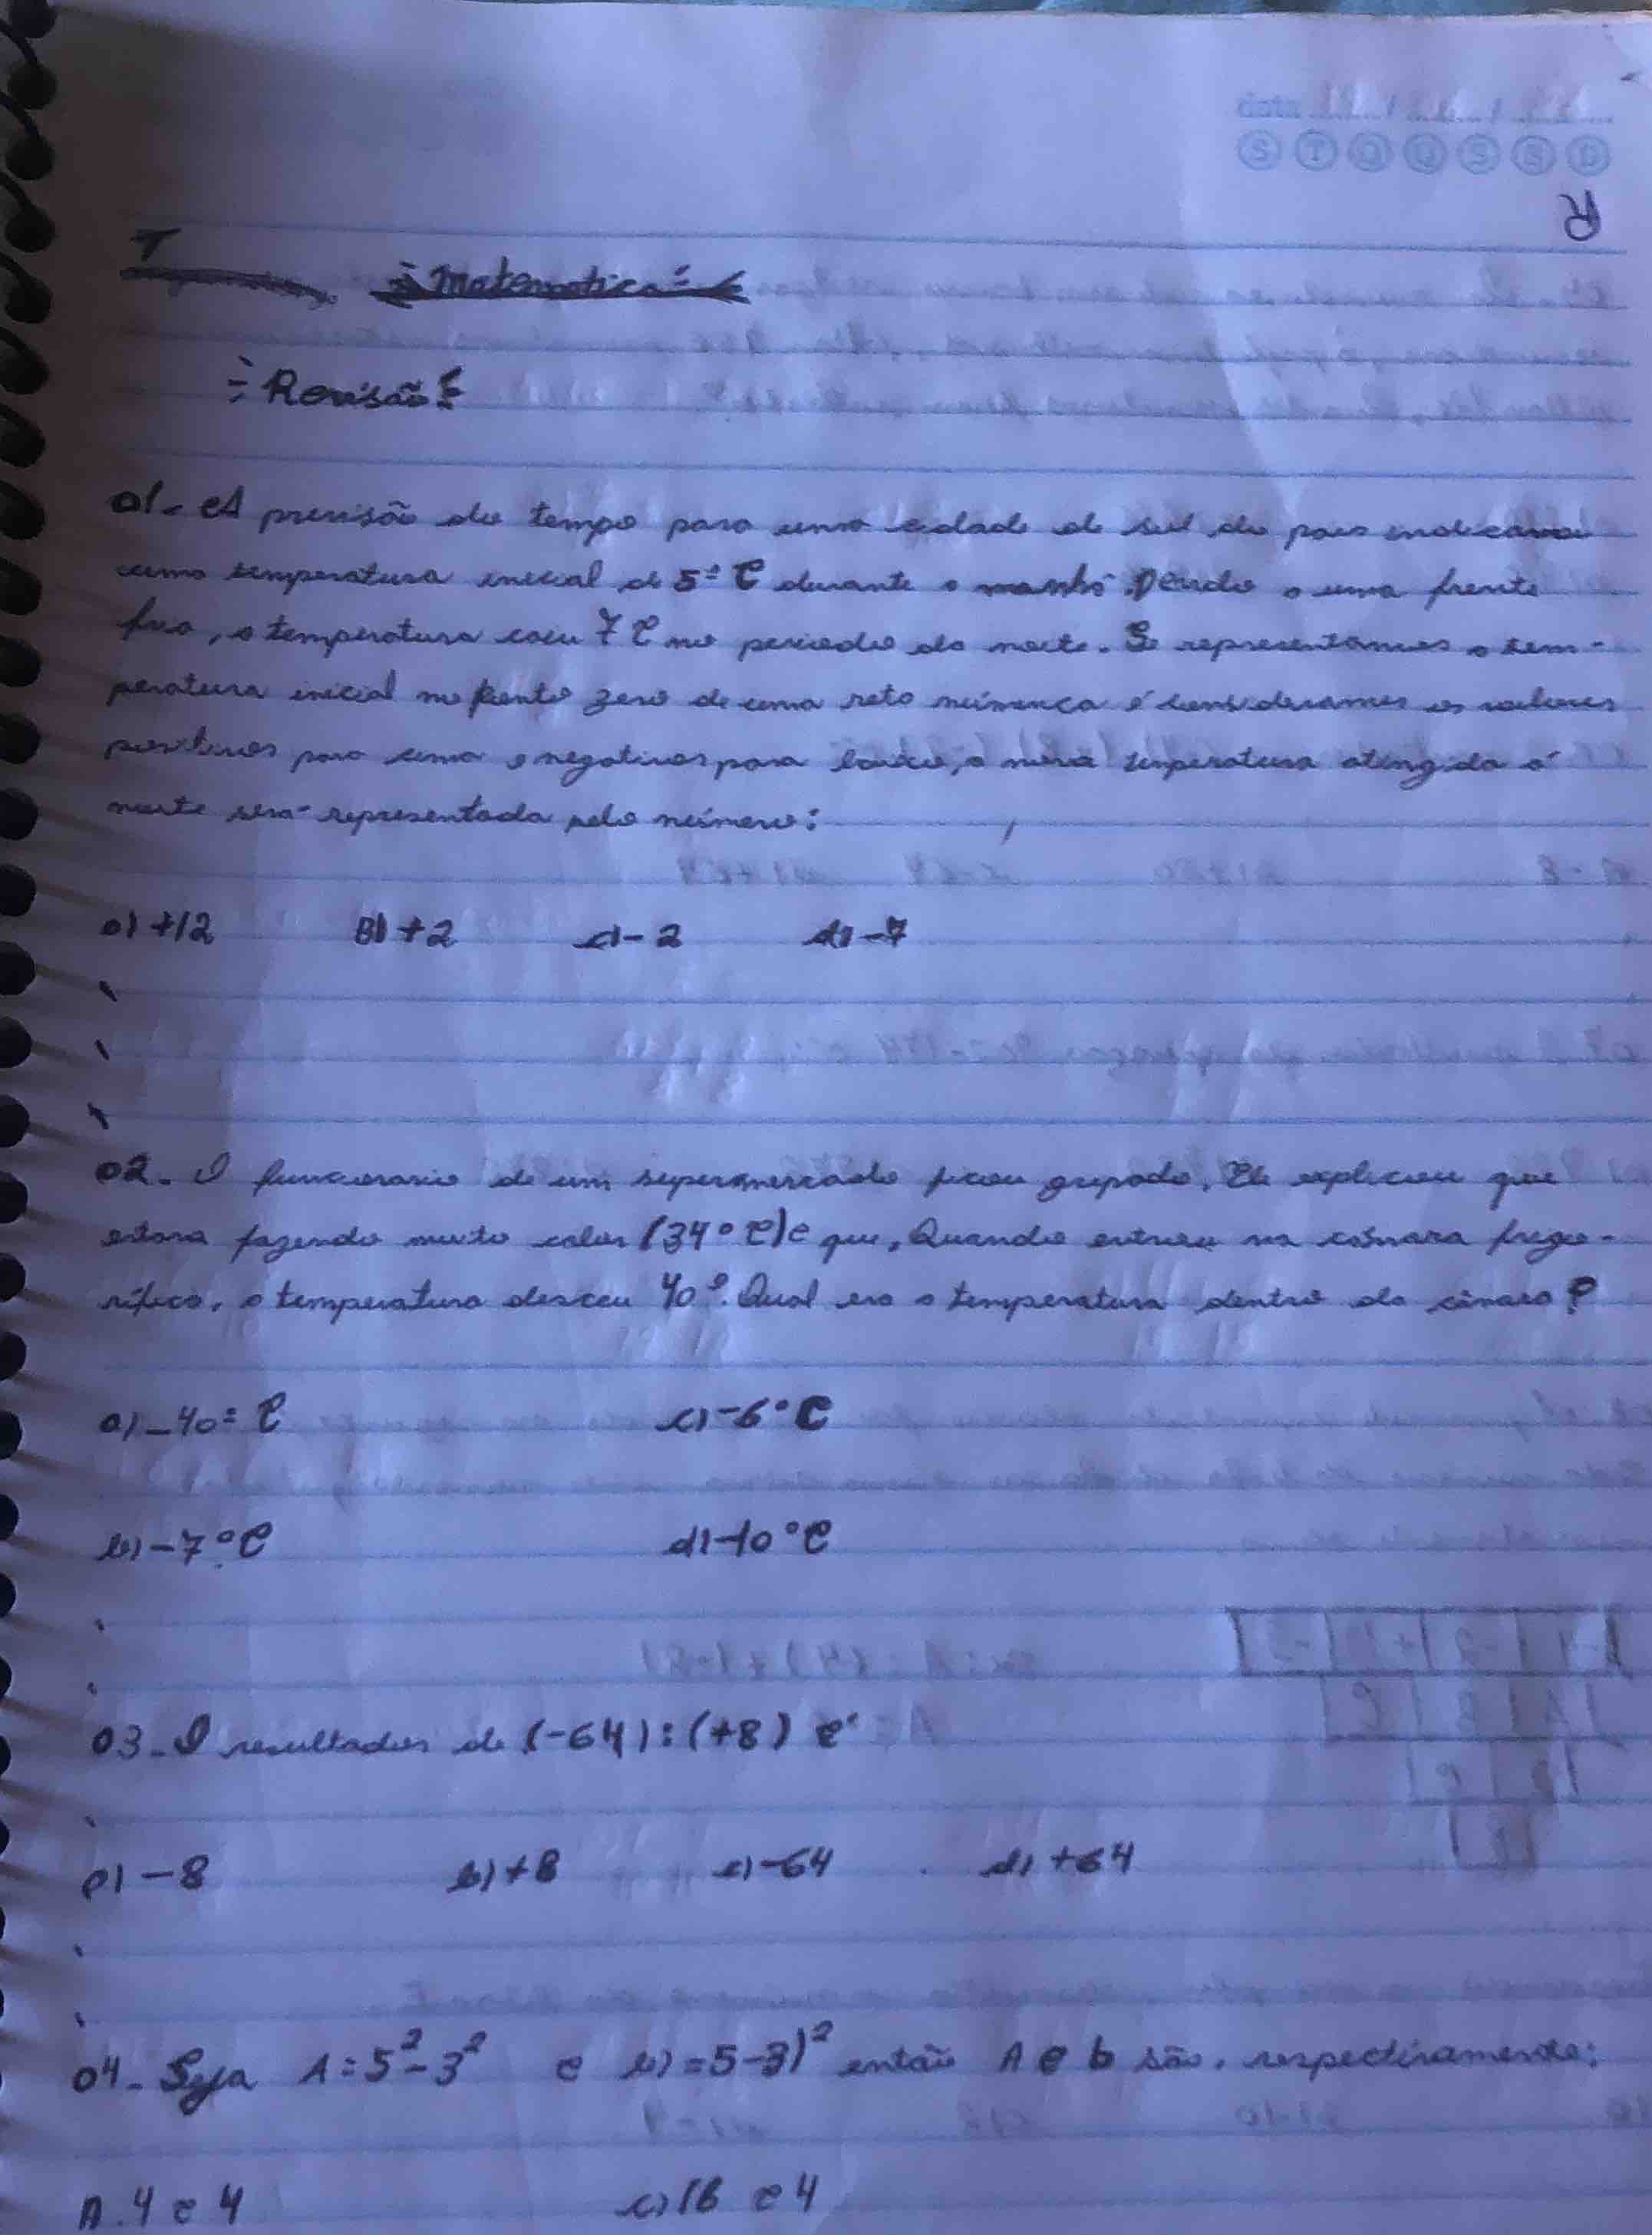 data
S T Q Q S S D
R
T
Matematica
Revisão
01- A previsão do tempo para uma cidade do sul do pais indicava
uma temperatura inicial de 5º C durante a manhã. Devido a uma frente
fria, a temperatura caiu 7 C no periodo da noite. Se representamos a tem-
peratura inicial no ponto zero de uma reta númerica é consideramos os valores
positivos para cima e negativos para baixo, a nova temperatura atingida á
noite será representada pelo número:
a) +12 B) +2 c) -2 d) -7
02- O funcionario de um supermercado ficou gripado. Ele explicou que
estava fazendo muito calor (34°C) e que, Quando entrou na câmara frigo-
rífica, a temperatura desceu 40°. Qual era a temperatura dentro da câmara?
a) -40º C c) -6°C
b) -7°C d) -10°C
03- O resultados de (-64):(+8) é
a) -8 b) +8 c) -64 d) +64
04- Seja A=5²-3² e b)=5-3)² então A e b são, respectivamente:
A. 4 e 4 c) 16 e 4